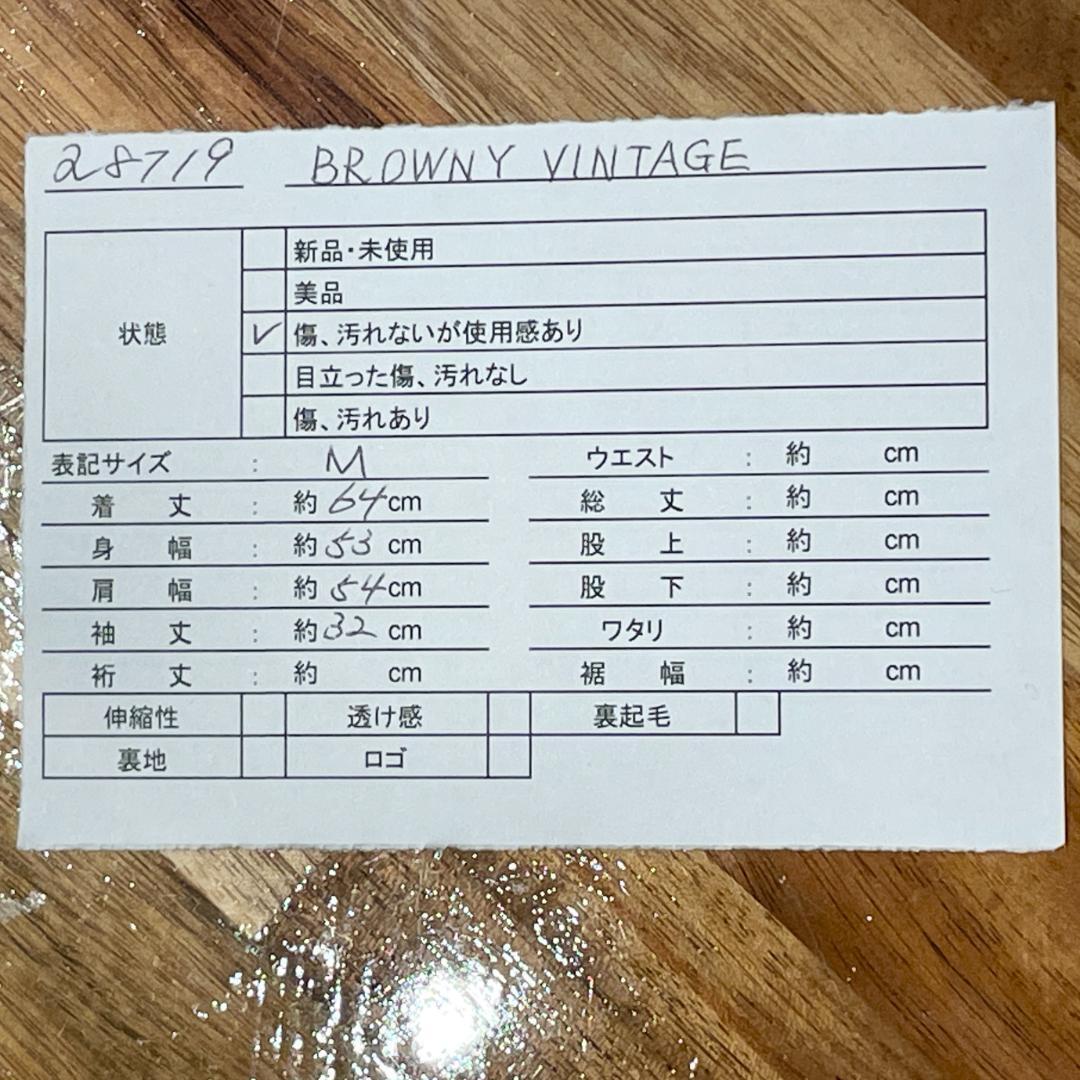 28719 BROWNY VINTAGE
新品・未使用
美品
状態 ✓ 傷、汚れないが使用感あり
目立った傷、汚れなし
傷、汚れあり
表記サイズ : M ウエスト : 約 cm
着丈 : 約64cm 総丈 : 約 cm
身幅 : 約53cm 股上 : 約 cm
肩幅 : 約54cm 股下 : 約 cm
袖丈 : 約32cm ワタリ : 約 cm
裄丈 : 約 cm 裾幅 : 約 cm
伸縮性 透け感 裏起毛
裏地 ロゴ